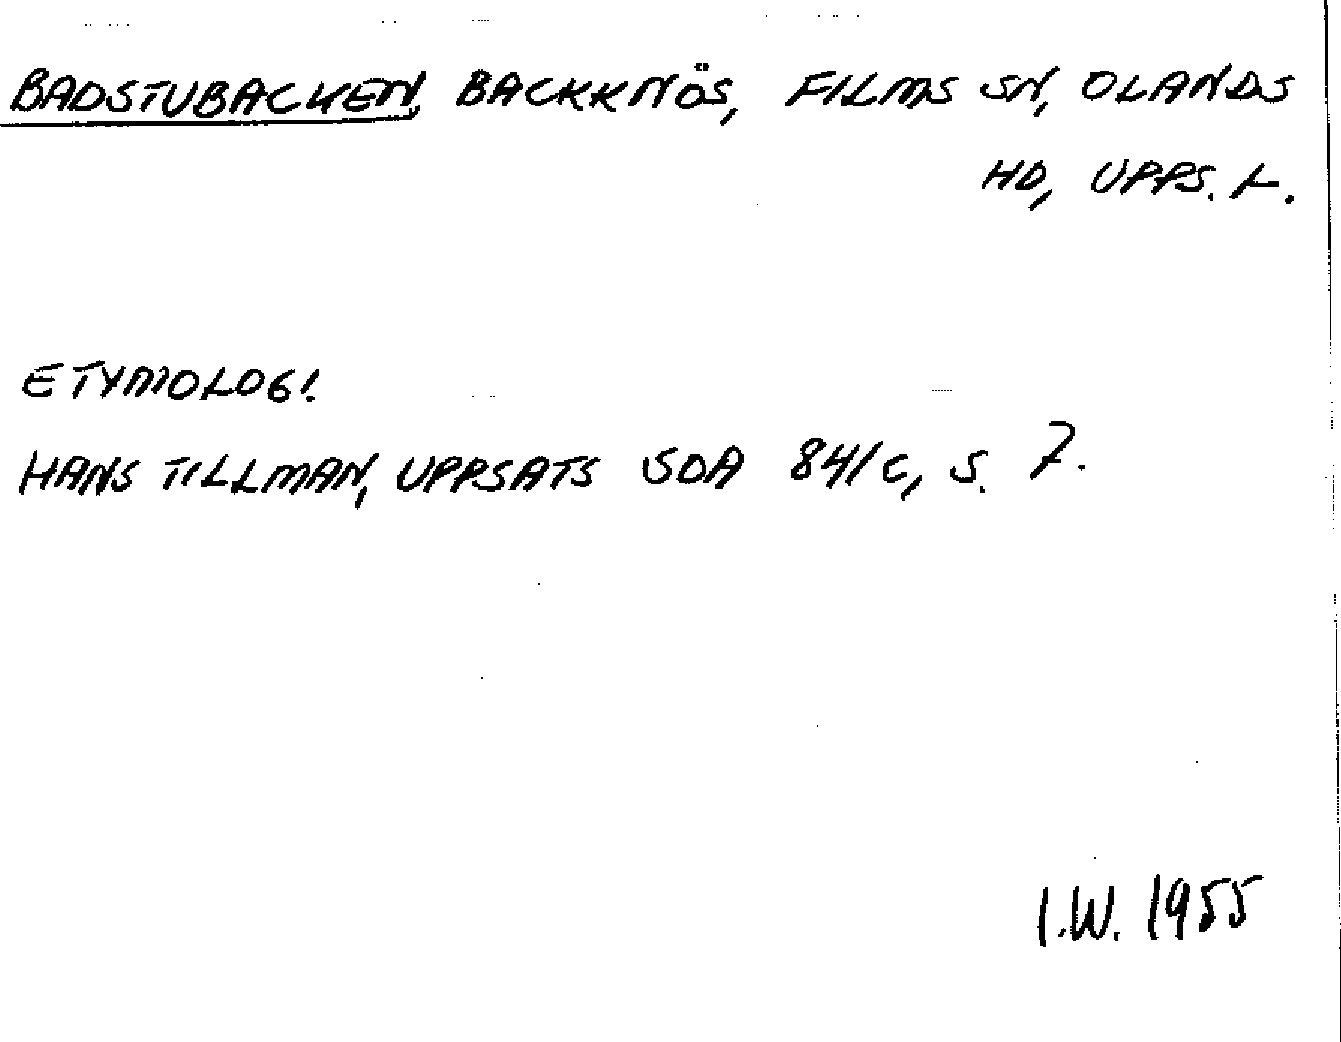 BADSTUBACKEN, BACKKNÖS, FILMS SN, OLANDS
HD, UPPS. L.
ETYMOLOGI
HANS TILLMAN, UPPSATS SOA 84/C, S. 7.
I.W. 1955